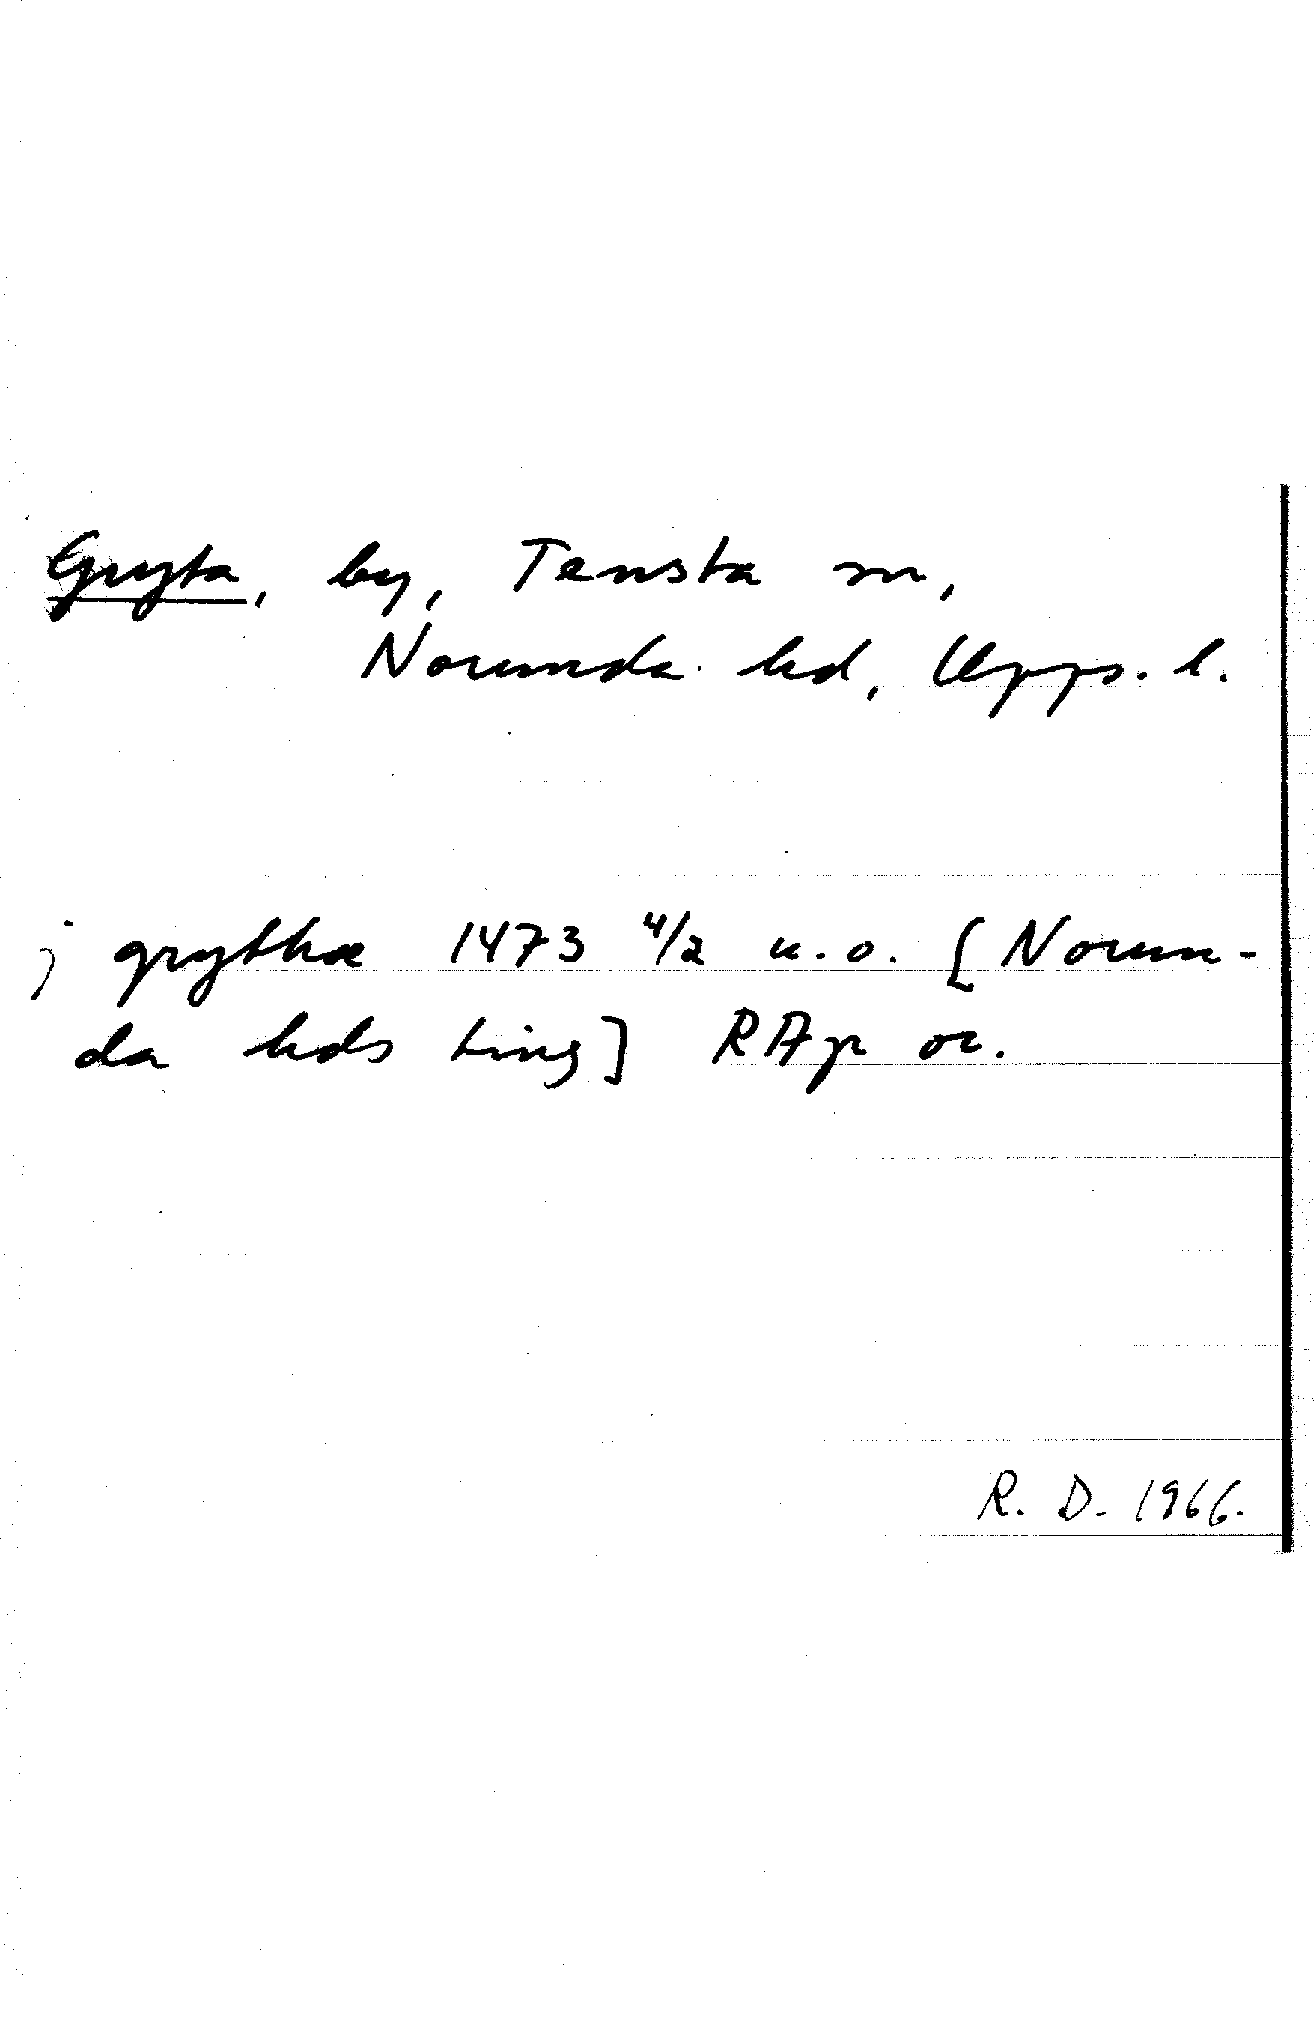 Gryta, by, Tensta sn,
Norunda hd, Upps. l.
j grythæ 1473 4/2 u.o. [Norun-
da hds ting] RAp or.
R. D. 1966.